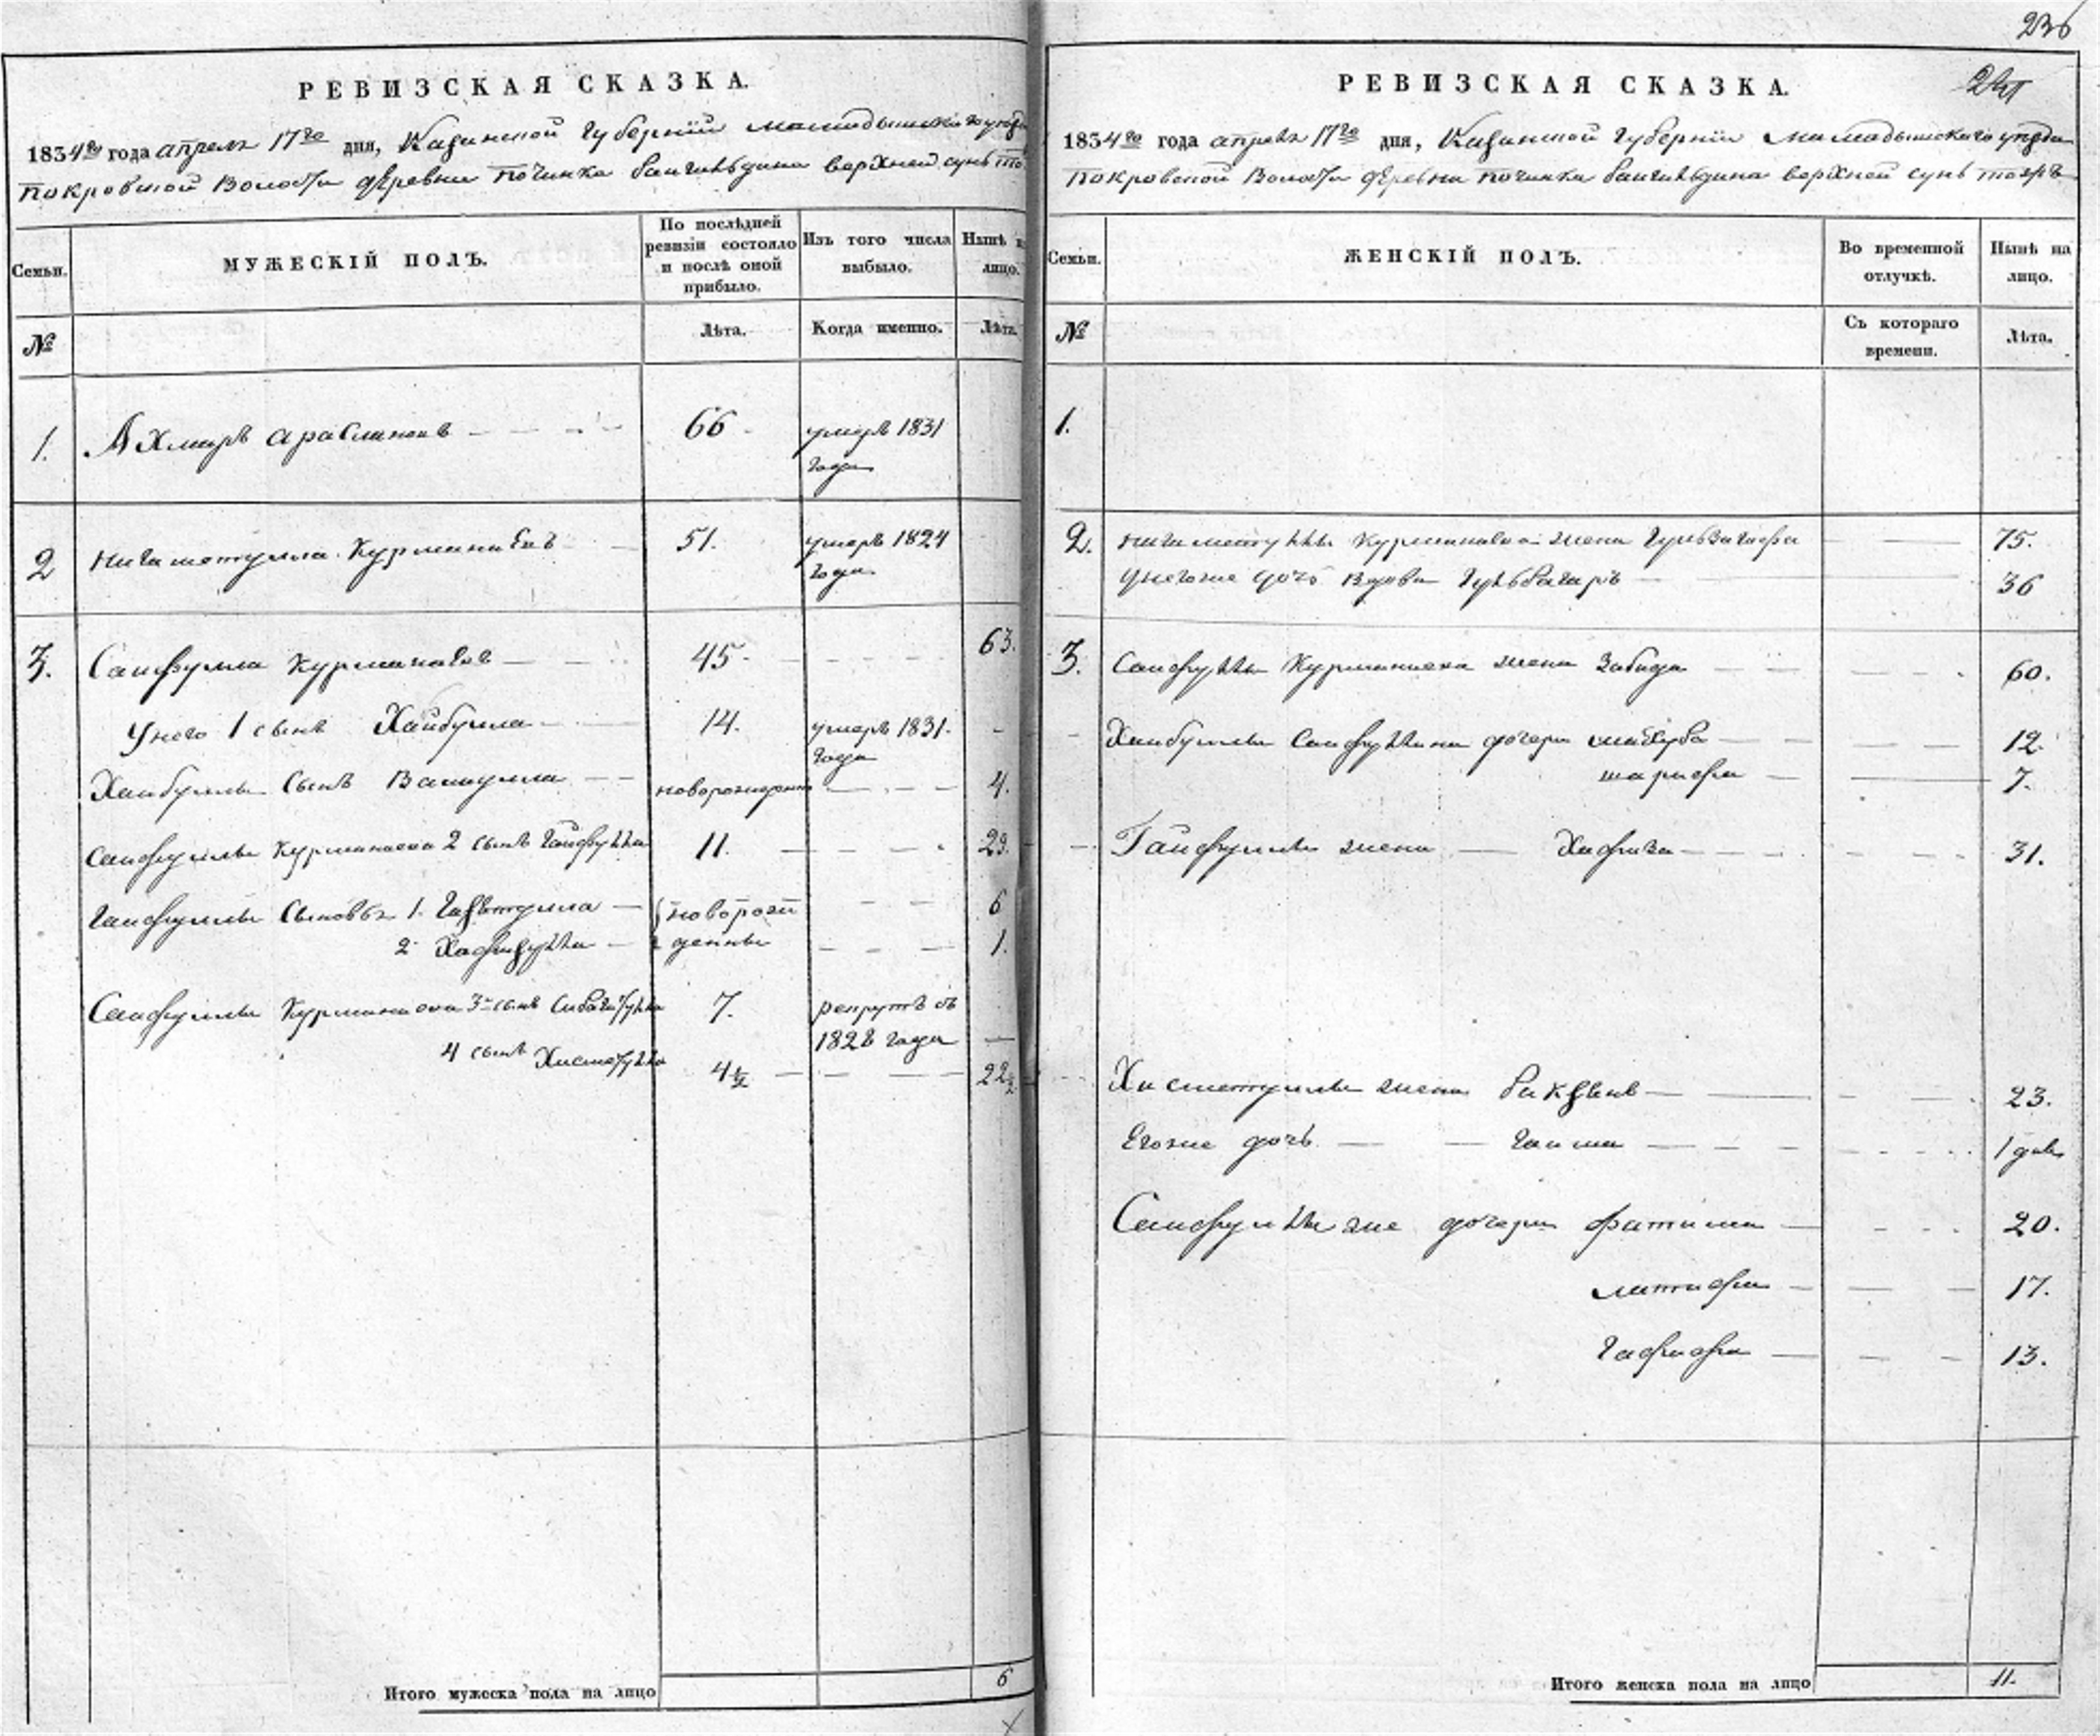 236
РЕВИЗСКАЯ СКАЗКА.
1834го года апреля 17го дня, Казанской Губернiи мамадышскаго уезда
покровской Волости деревни починка бангильдина верхней сунь тожъ
Семьи.
МУЖЕСКIЙ ПОЛЪ.
По послѣдней ревизiи состояло и послѣ оной прибыло.
Изъ того числа выбыло.
Нынѣ на лицо.
№
Лѣта.
Когда именно.
Лѣта.
1. Ахмиръ араслановъ 66 умеръ 1831
года
2 нигаметулла Курманаевъ 51. умеръ 1824
года
3. Сайфулла Курманаевъ 45 63.
У него 1 сынъ Хайбулла 14. умеръ 1831.
года
Хайбуллы Сынъ Валиулла новорожденны 4.
Сайфуллы Курманаева 2 сынъ Гайфулла 11. 29.
Гайфуллы Сыновья 1. новорож 6
2 Хафизулла денны 1.
Сайфуллы Курманаева 3 сынъ Сибагатулла 7. рекрутъ съ
1828 года
4 сынъ Хисматулла 4½ 22½
Итого мужеска пола на лицо 6
РЕВИЗСКАЯ СКАЗКА.
1834го года апреля 17го дня, Казанской Губернiи Мамадышскаго уезда
покровской Волости деревни починка бангильдина верхней сунь тожъ
Семьи.
ЖЕНСКIЙ ПОЛЪ.
Во временной отлучкѣ.
Нынѣ на лицо.
№
Съ котораго времени.
Лѣта.
1.
2. нигаметуллы Курманаева жена 75.
у него же дочь вдова Гульбагаръ 36
3. Сайфуллы Курманаева жена Забида 60.
Хайбуллы Сайфуллина дочери 12.
шарифа 7.
Гайфуллы жена Хафиза 31.
Хисметуллы жена 23.
Его же дочь 1
Сайфуллы же дочери фатима 20.
латифа 17.
Гафифа 13.
Итого женска пола на лицо 11.